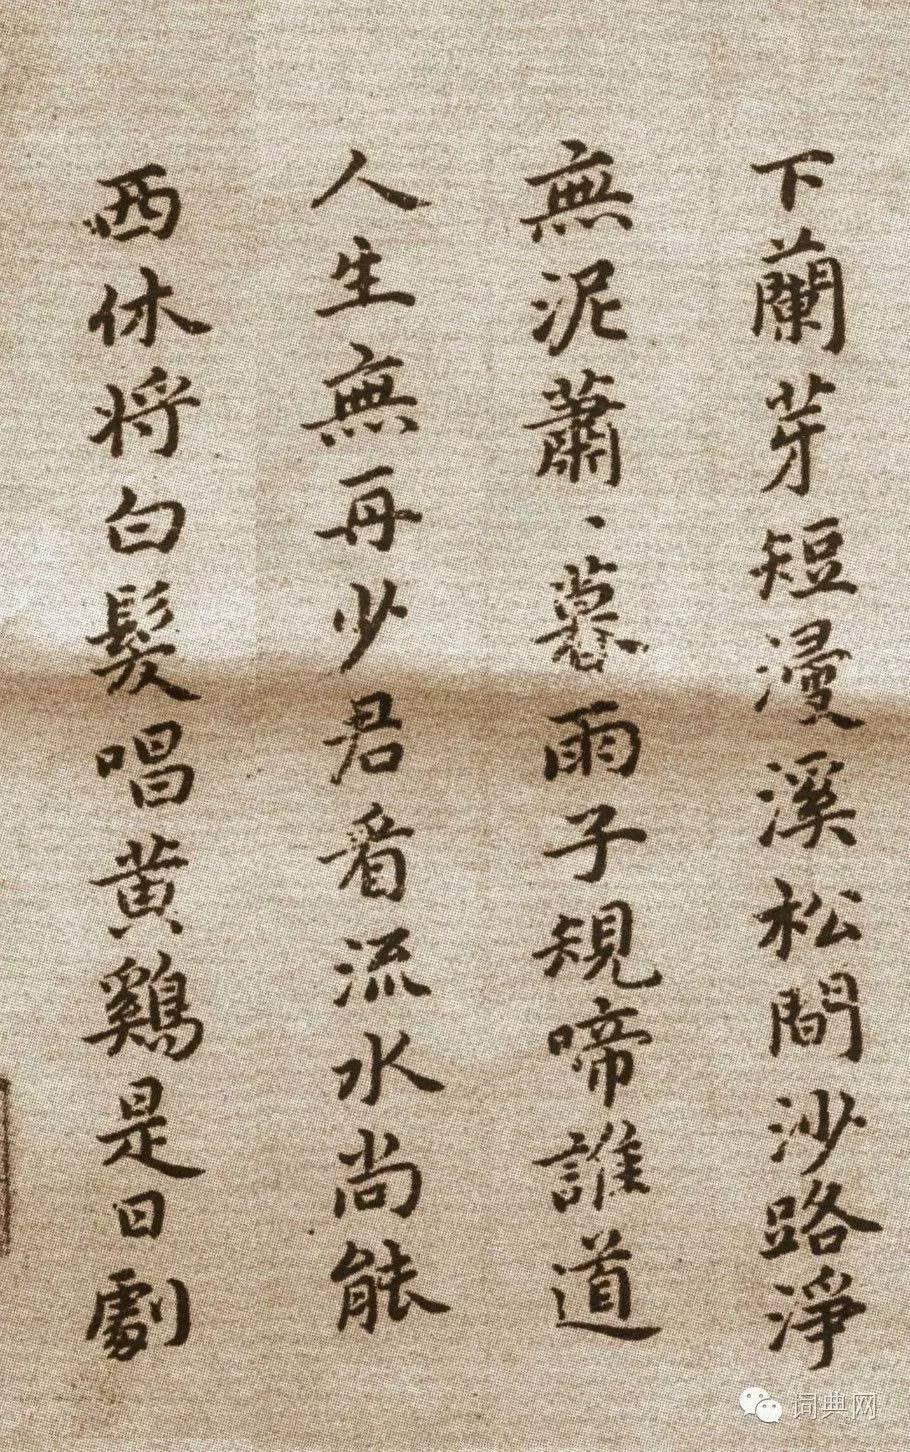 下蘭芽短漫溪松間沙路淨
無泥蕭、暮雨子規啼誰道
人生無再少君看流水尚能
西休将白髮唱黄鷄是日劇
词典网